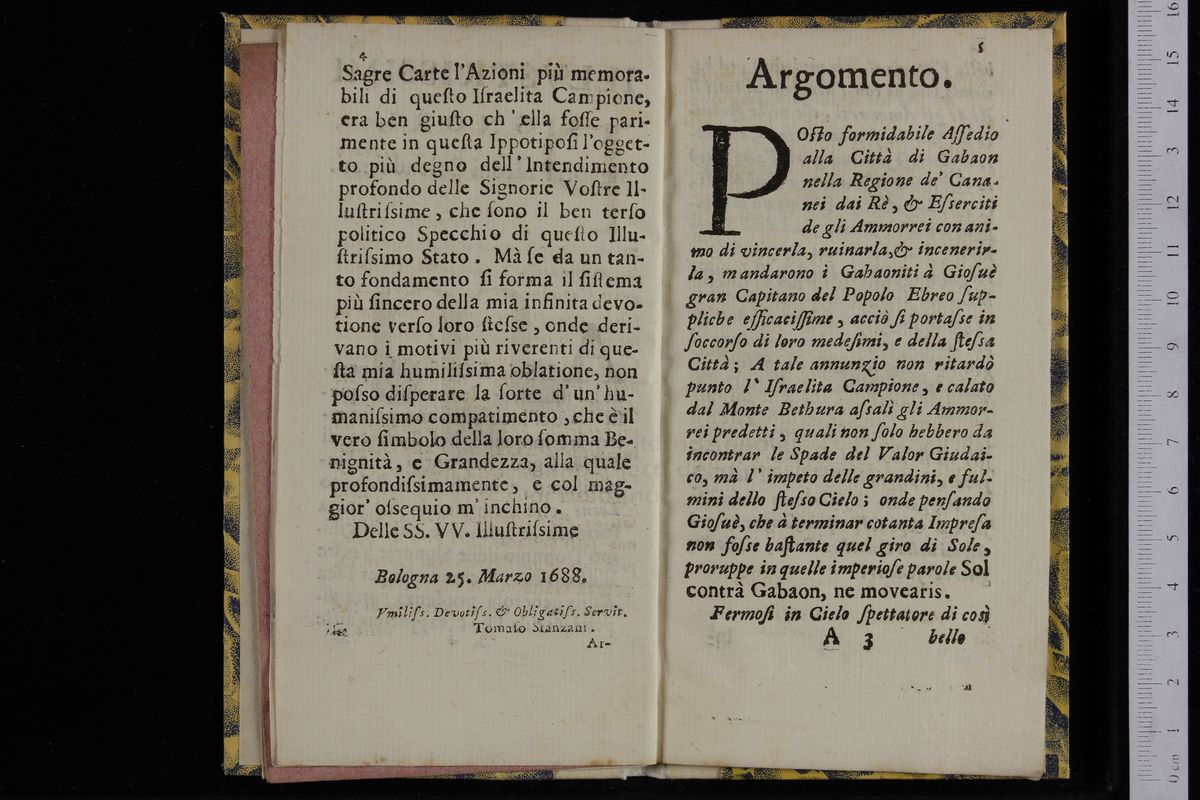 4
Sagre Carte l'Azioni più memora-
bili di queſto Iſraelita Campione,
era ben giuſto ch' ella foſſe pari-
mente in queſta Ippotipoſi l'ogget-
to più degno dell' Intendimento
profondo delle Signorie Voſtre Il-
luſtriſsime, che ſono il ben terſo
politico Specchio di queſto Illu-
ſtriſsimo Stato. Mà ſe da un tan-
to fondamento ſi forma il ſiſtema
più ſincero della mia infinita devo-
tione verſo loro ſteſse, onde deri-
vano i motivi più riverenti di que-
ſta mia humiliſsima oblatione, non
poſso diſperare la ſorte d' un' hu-
maniſsimo compatimento, che è il
vero ſimbolo della loro ſomma Be-
nignità, e Grandezza, alla quale
profondiſsimamente, e col mag-
gior' oſsequio m' inchino.
Delle SS. VV. Illuſtriſsime
Bologna 25. Marzo 1688.
Vmiliſs. Devotiſs. & Obligatiſs. Servit.
Tomaſo Stanzani.
Ar-
5
Argomento.
POſto formidabile Aſſedio
alla Città di Gabaon
nella Regione de' Cana-
nei dai Rè, & Eſserciti
de gli Ammorrei con ani-
mo di vincerla, ruinarla, & incenerir-
la, mandarono i Gabaoniti à Gioſuè
gran Capitano del Popolo Ebreo ſup-
pliche efficaciſſime, acciò ſi portaſse in
ſoccorſo di loro medeſimi, e della ſteſsa
Città; A tale annunzio non ritardò
punto l' Iſraelita Campione, e calato
dal Monte Bethura aſsalì gli Ammor-
rei predetti, quali non ſolo hebbero da
incontrar le Spade del Valor Giudai-
co, mà l' impeto delle grandini, e ful-
mini dello ſteſso Cielo; onde penſando
Gioſuè, che à terminar cotanta Impreſa
non foſse baſtante quel giro di Sole,
proruppe in quelle imperioſe parole Sol
contrà Gabaon, ne movearis.
Fermoſi in Cielo ſpettatore di così
A 3 bello